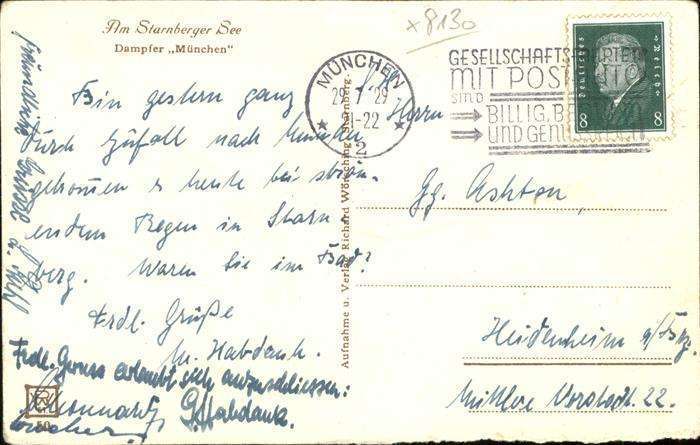 Am Starnberger See
Dampfer „München"
x 8130
Bin gestern ganz
durch Zufall nach München
gekommen & heute bei ström-
endem Regen in Starn-
berg. Waren Sie im Bad?
Frdl. Grüße
M. Habdank.
Frdl. Gruss erlaubt sich anzuschliessen:
G. Habdank.
Freundliche Grüsse
Aufnahme u. Verlag Richard Wörsching, Starnberg.
MÜNCHEN
29 7 29
21-22
2
GESELLSCHAFTSFAHRTEN
MIT POSTAUTO
SIND
BILLIG, BEQUEM
UND GENUSSREICH
Deutsches Reich
8 8
Herrn
Gg. Ashton,
Heidenheim a/Brz
Mittlere Vorstadt. 22.